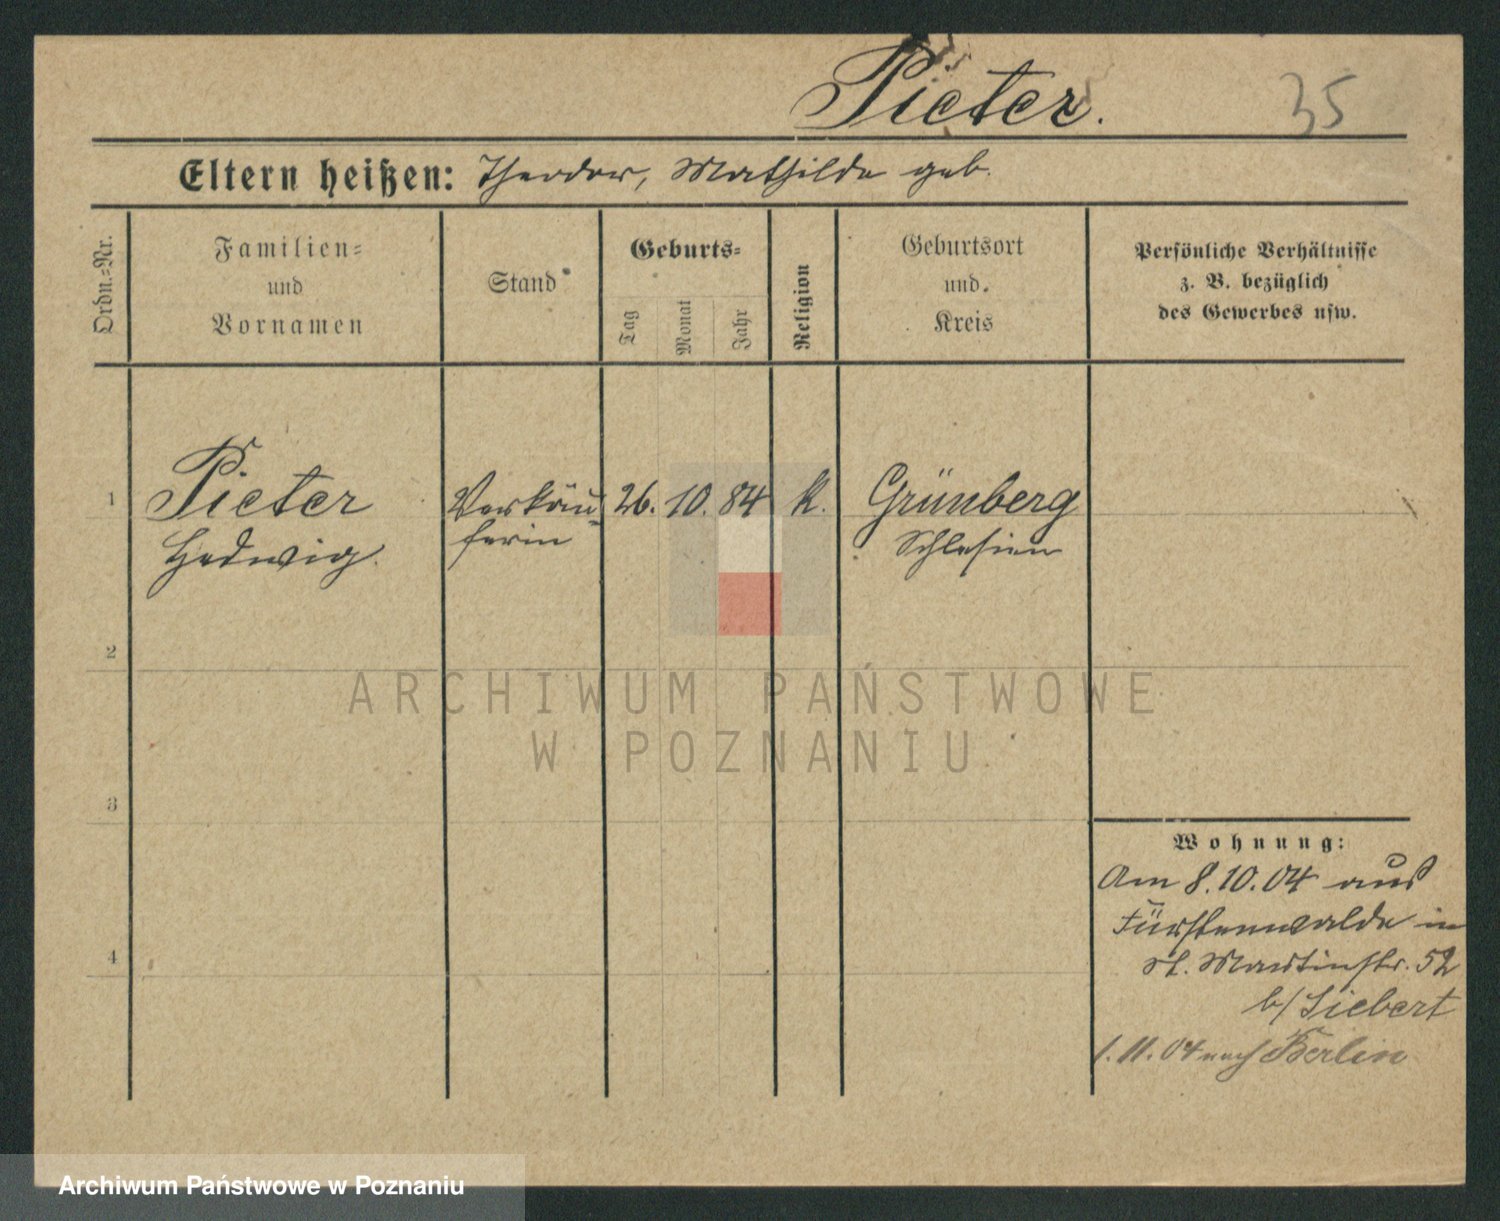 Pieter.
35
Eltern heißen: Theodor, Mathilde geb.
Ordn.=Nr.
Familien=
und
Vornamen
Stand
Geburts=
Tag
Monat
Jahr
Religion
Geburtsort
und
Kreis
Persönliche Verhältnisse
z. B. bezüglich
des Gewerbes usw.
1
Pieter
Hedwig.
Verkäu=
ferin
26. 10. 84
K.
Grünberg
Schlesien
2
3
4
Wohnung:
Am 8.10.04 aus
Fürstenwalde in
St. Martinstr. 52
b/ Siebert
1. 11. 04 nach Berlin
ARCHIWUM PAŃSTWOWE
W POZNANIU
Archiwum Państwowe w Poznaniu